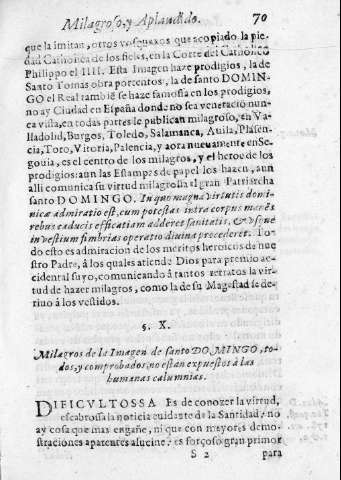 Milagroso, y Aplaudido. 70
que la imitan, otros vosquexos que acopiado la pie-
dad Catholica de los fieles, en la Corte del Catholico
Philippo el IIII. Esta Imagen haze prodigios, la de
Santo Tomas obra portentos, la de santo DOMIN-
GO el Real tambiē se haze famosa en los prodigios,
no ay Ciudad en España donde no sea veneració nun-
ca vista, en todas partes le publican milagroso, en Va-
lladolid, Burgos, Toledo, Salamanca, Auila, Plasen-
cia, Toro, Vitoria, Palencia, y aora nueuamente en Se-
gouia, es el centro de los milagros, y el heroe de los
prodigios: aun las Estampas de papel los hazen, aun
alli comunica su virtud milagrossa el gran Patriarcha
santo DOMINGO. In quo magna virtutis domi-
nicæ admiratio est, cum potestas intra corpus manēs
rebus caducis efficatiam adderet sanitatis, & vsque
in vestium fimbrias operatio diuina procederet. To-
do esto es admiracion de los meritos heroicos de nue
stro Padre, á los quales atiende Dios para premio ac-
cidental suyo, comunicando á tantos retratos la vir-
tud de hazer milagros, como la de su Magestad se de-
riuo á los vestidos.
§. X.
Milagros de la Imagen de santo DOMINGO, to-
dos, y comprobados, no estan expuestos à las
humanas calumnias.
DIFICVLTOSSA Es de conozer la virtud,
escabrossa la noticia euidante de la Santidad: no
ay cosa que mas engañe, ni que con mayores demo-
straciones aparentes alucine: es forçoso gran primor
S 2 para